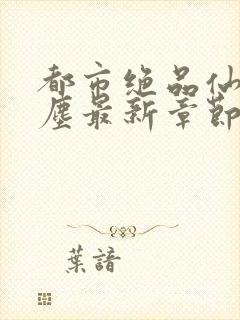 都市绝品仙
尘最新章節
葉諳